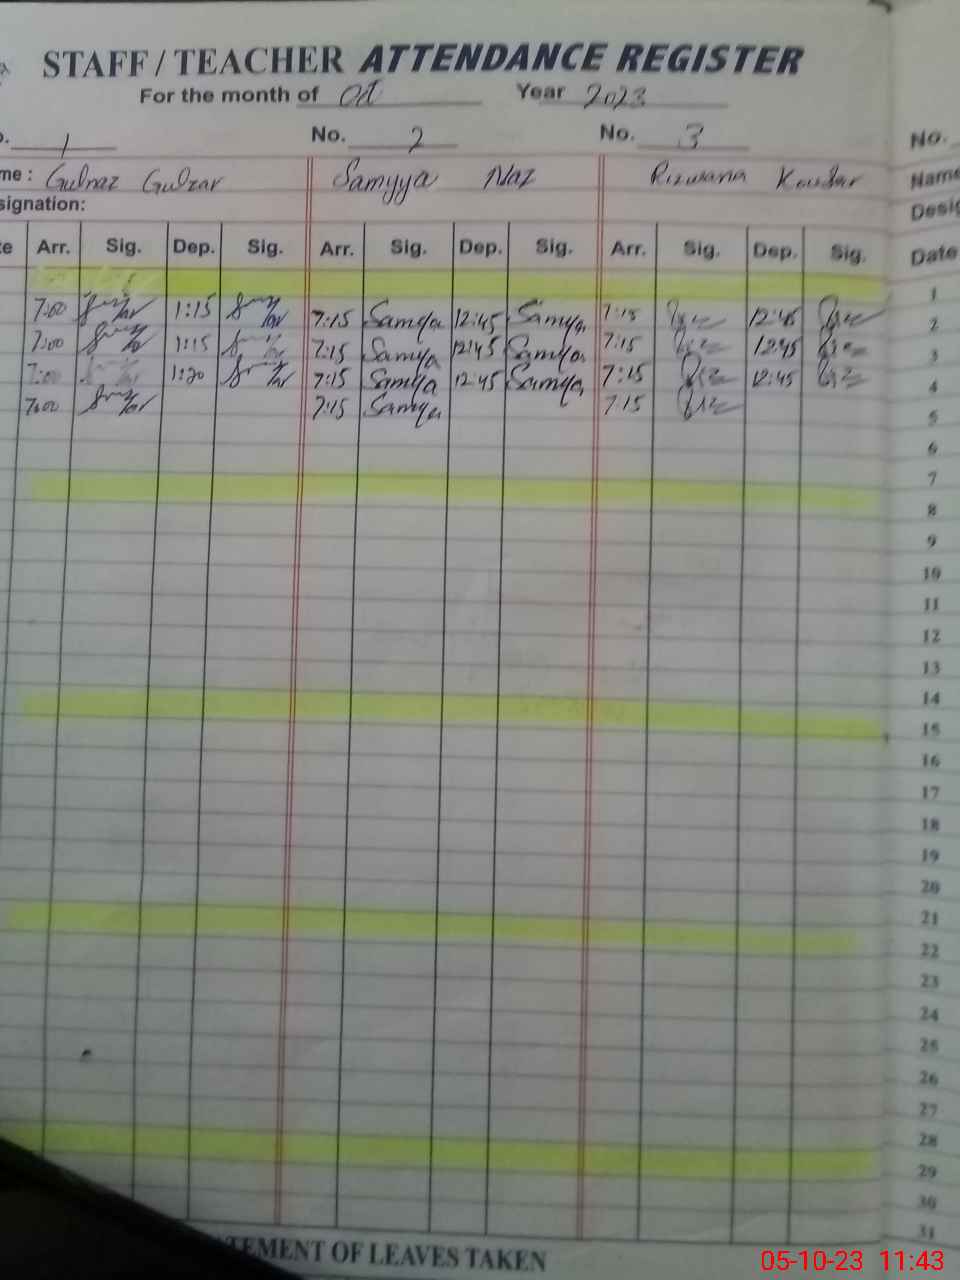 STAFF / TEACHER ATTENDANCE REGISTER
For the month of Oct Year 2023
1 No. 2 No. 3 No.
me : Gulnaz Gulzar Samyya Naz Rizwana Kousar Name
signation: Desig
te Arr. Sig. Dep. Sig. Arr. Sig. Dep. Sig. Arr. Sig. Dep. Sig. Date
1
7:00 1:15 7:15 Samyya 12:45 Samyya 7:15 12:45 2
7:00 1:15 7:15 Samyya 12:45 Samyya 7:15 12:45 3
7:00 1:20 7:15 Samyya 12:45 Samyya 7:15 12:45 4
7:00 7:15 Samyya 7:15 5
6
7
8
9
10
11
12
13
14
15
16
17
18
19
20
21
22
23
24
25
26
27
28
29
30
31
TEMENT OF LEAVES TAKEN
05-10-23 11:43